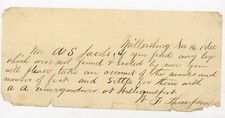 Millersburg Nov 16, 1860
Mr A S Jacobs, if you find any logs
which were not found & scaled by our you
will please take an account of the marks and
number of feet and Settle for them with
a a at Williamsport
W F Thompson